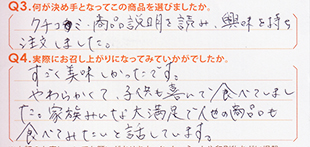 Q3.何が決め手となってこの商品を選びましたか。
クチコミ・商品説明を読み、興味を持ち
注文しました。
Q4.実際にお召し上がりになってみていかがでしたか。
すごく美味しかったです。
やわらかくて、子供も喜んで食べていまし
た。家族みんな大満足で他の商品も
食べてみたいと話しています。